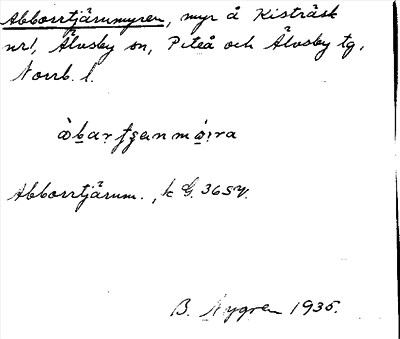 Abborrtjärnmyren, myr å Kisträsk
nr1, Älvsby sn, Piteå och Älvsby tg,
Norrb. l.
Abborrtjärnm., k G. 36 SV.
B. Nygren 1935.